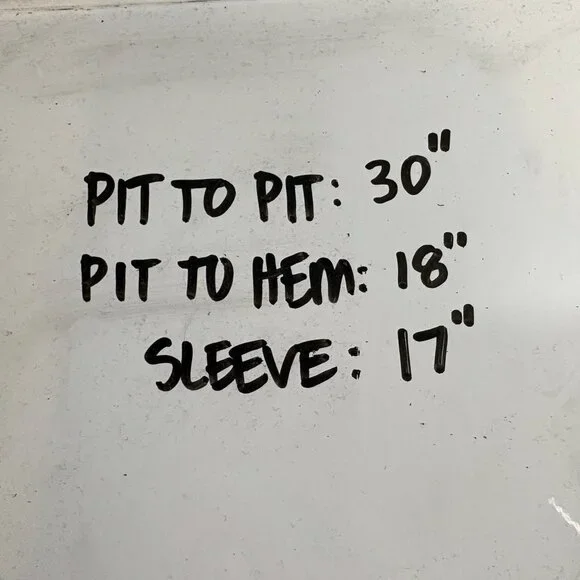 PIT TO PIT: 30"
PIT TO HEM: 18"
SLEEVE: 17"